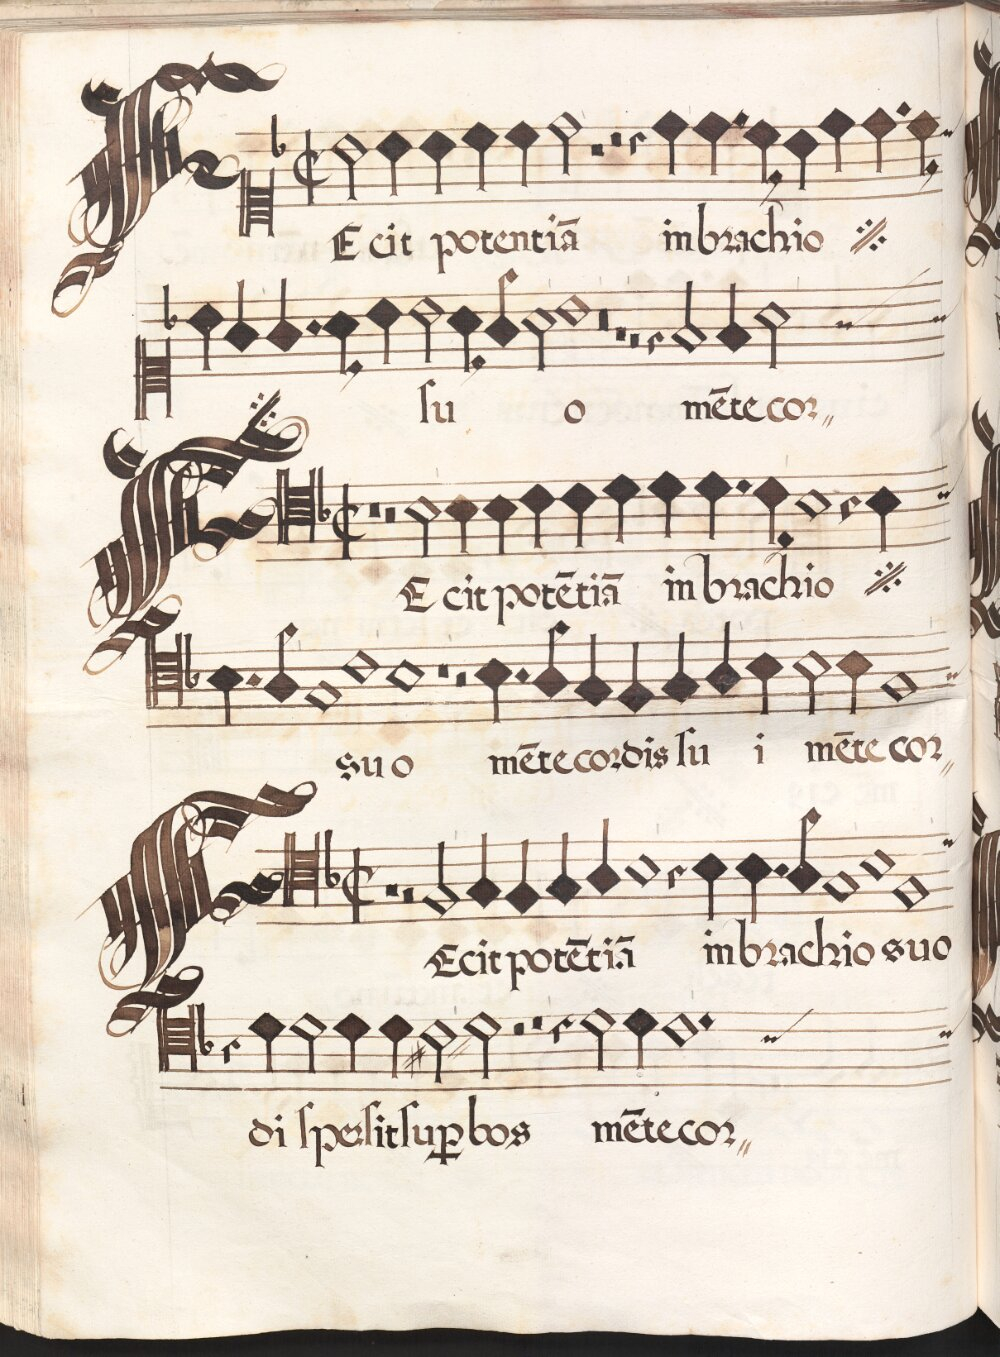 FEcit potentiã in brachio
su o mẽte cor
FE cit potẽtiã in brachio
suo mẽte cordis su i mẽte cor
FEcit potẽtiã in brachio suo
di spersit suꝑbos mẽte cor